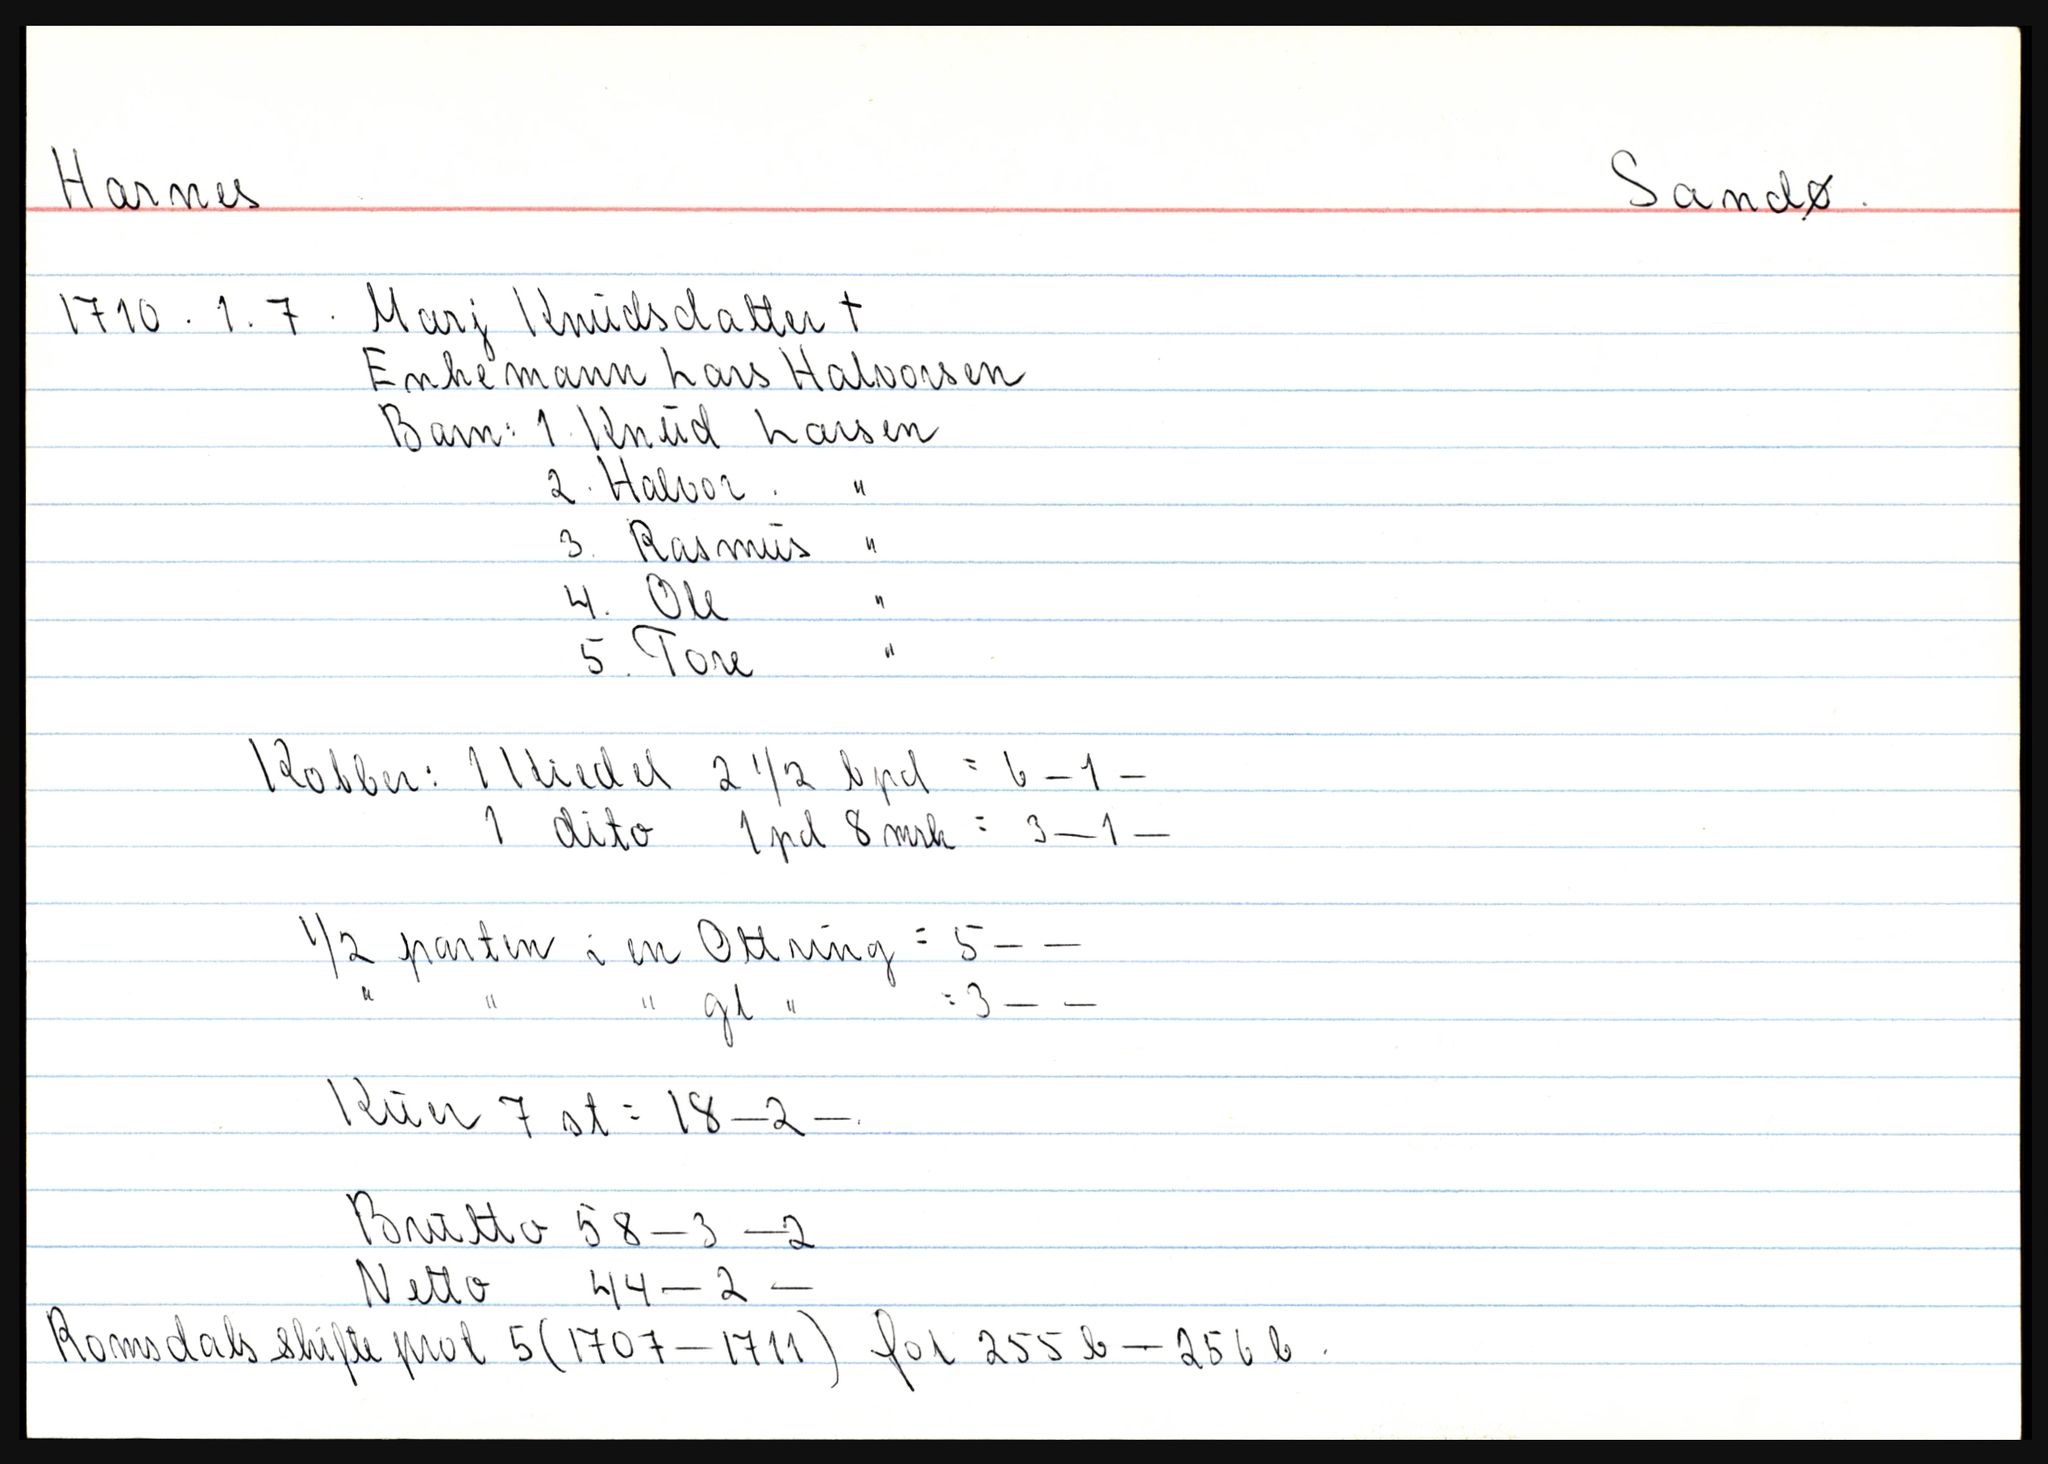 Harnes Sandø.
1710. 1. 7. Marj Knüdsdatter +
Enkemann Lars Halvorsen
Barn: 1. Knüd Larsen
2. Halvor. "
3. Rasmüs "
4. Ole "
5. Tore "
Kobber: 1 Kiedel 2 1/2 bpd = 6 – 1 –
1 dito 1 pd 8 mrk = 3 – 1 –
1/2 parten i en Ottring = 5 – –
" " " gl " = 3 – –
Küer 7 st = 18 – 2 –.
Brütto 58 – 3 – 2
Netto 44 – 2 –
Romsdals skifte prot 5 (1707 – 1711) fol 255 b – 256 b.